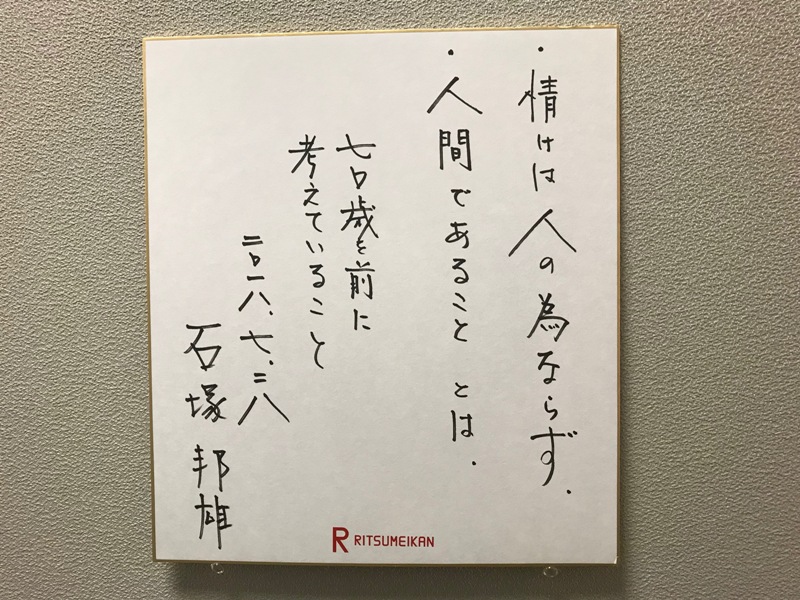 ・情けは人の為ならず.
・人間であること とは.
七〇歳を前に
考えていること
二〇一八.七.二八
石塚邦雄
R RITSUMEIKAN